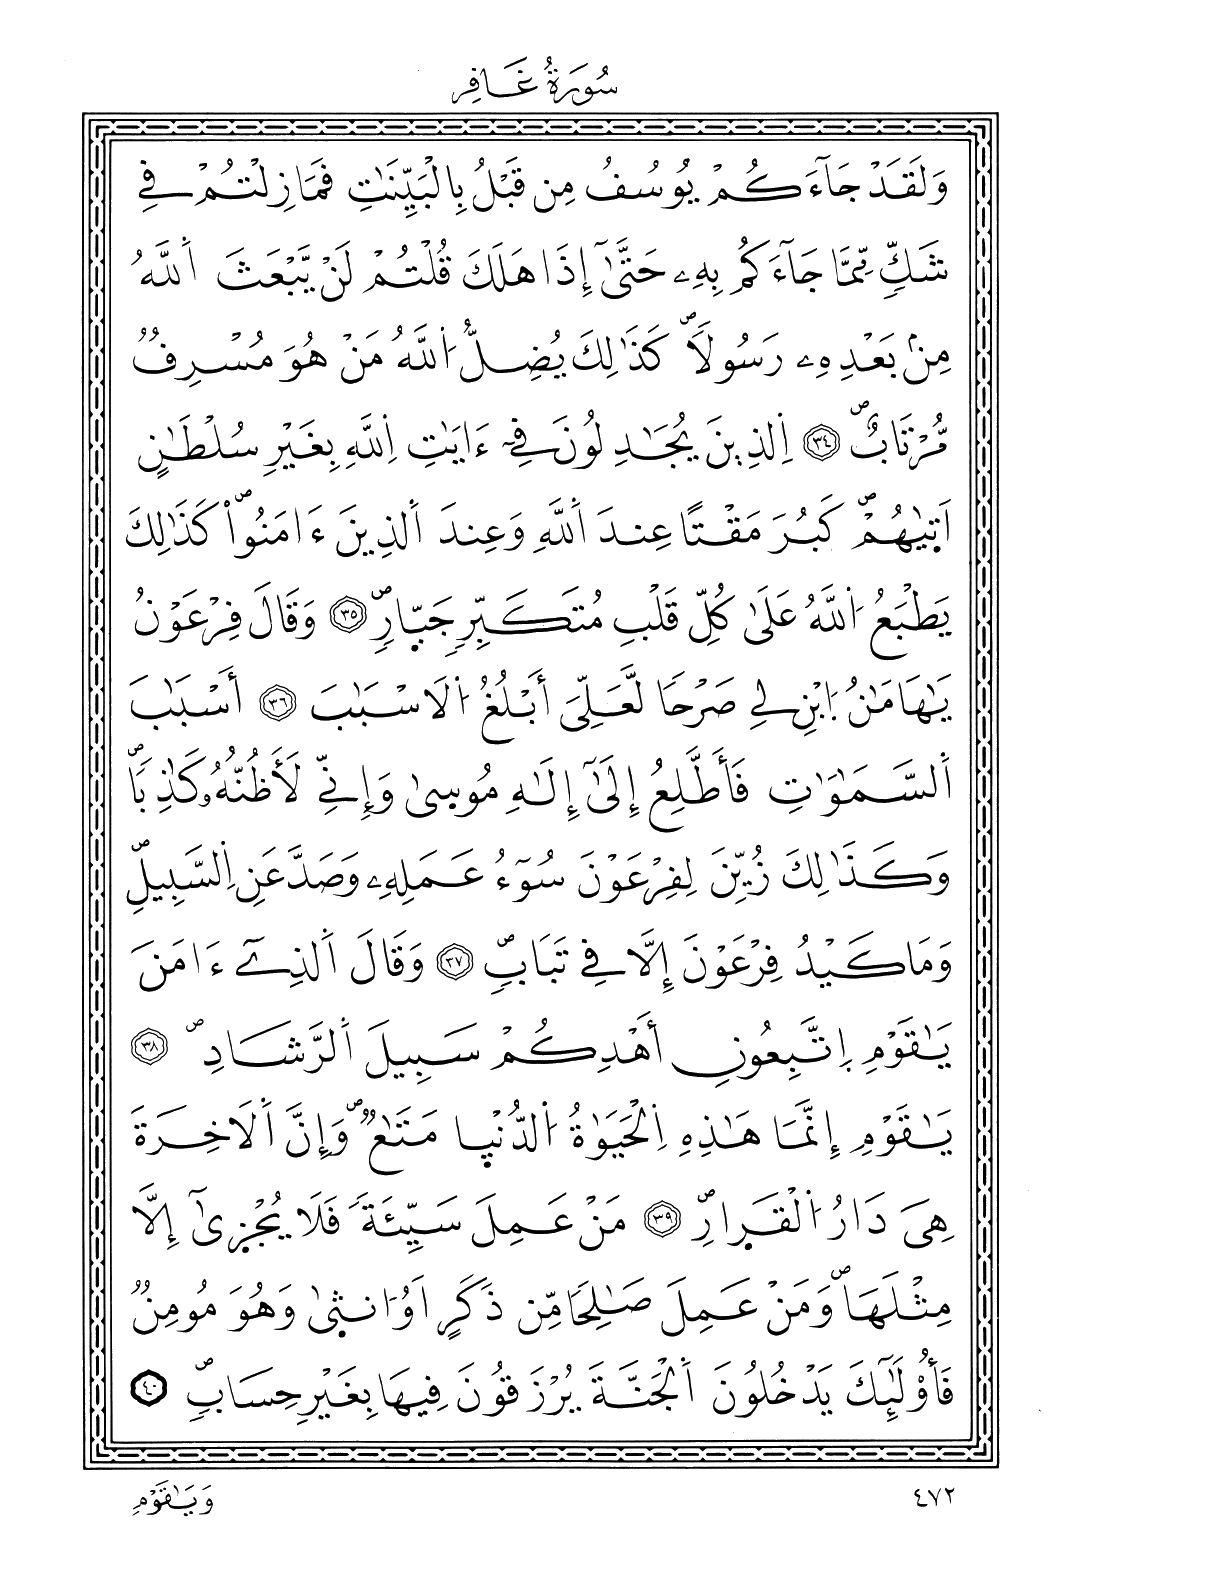 سُورَةُ غَافِر
وَلَقَدْ جَآءَكُمْ يُوسُفُ مِن قَبْلُ بِالْبَيِّنَٰتِ فَمَا زِلْتُمْ فِے
شَكٍّ مِّمَّا جَآءَكُم بِهِۦ حَتَّىٰٓ إِذَا هَلَكَ قُلْتُمْ لَنْ يَّبْعَثَ اَ۬للَّهُ
مِنۢ بَعْدِهِۦ رَسُولاٗۖ كَذَٰلِكَ يُضِلُّ اُ۬للَّهُ مَنْ هُوَ مُسْرِفٞ
مُّرْتَابٌۖ ٣٤ اِ۬لذِينَ يُجَٰدِلُونَ فِےٓ ءَايَٰتِ اِ۬للَّهِ بِغَيْرِ سُلْطَٰنٍ
اَتٜىٰهُمْۖ كَبُرَ مَقْتاً عِندَ اَ۬للَّهِ وَعِندَ اَ۬لذِينَ ءَامَنُواْۖ كَذَٰلِكَ
يَطْبَعُ اُ۬للَّهُ عَلَىٰ كُلِّ قَلْبِ مُتَكَبِّرٖ جَبّٜارٖۖ ٣٥ وَقَالَ فِرْعَوْنُ
يَٰهَامَٰنُ اُ۪بْنِ لِے صَرْحاٗ لَّعَلِّيَ أَبْلُغُ اُ۬لَاسْبَٰبَ ٣٦ أَسْبَٰبَ
اَ۬لسَّمَٰوَٰتِ فَأَطَّلِعُ إِلَىٰٓ إِلَٰهِ مُوسٜىٰ وَإِنِّے لَأَظُنُّهُۥ كَٰذِباٗۖ
وَكَذَٰلِكَ زُيِّنَ لِفِرْعَوْنَ سُوٓءُ عَمَلِهِۦ وَصَدَّ عَنِ اِ۬لسَّبِيلِۖ
وَمَا كَيْدُ فِرْعَوْنَ إِلَّا فِے تَبَابٖۖ ٣٧ وَقَالَ اَ۬لذِےٓ ءَامَنَ
يَٰقَوْمِ اِ۪تَّبِعُونِۦ أَهْدِكُمْ سَبِيلَ اَ۬لرَّشَادِۖ ٣٨
يَٰقَوْمِ إِنَّمَا هَٰذِهِ اِ۬لْحَيَوٰةُ اُ۬لدُّنْيٜا مَتَٰعٞۖ وَإِنَّ اَ۬لَاخِرَةَ
هِيَ دَارُ اُ۬لْقَرٜارِۖ ٣٩ مَنْ عَمِلَ سَيِّئَةٗ فَلَا يُجْزٜىٰٓ إِلَّا
مِثْلَهَاۖ وَمَنْ عَمِلَ صَٰلِحاٗ مِّن ذَكَرٍ اَوُ ا۟نثٜىٰ وَهُوَ مُومِنٞ
فَأُوْلَٰٓئِكَ يَدْخُلُونَ اَ۬لْجَنَّةَ يُرْزَقُونَ فِيهَا بِغَيْرِ حِسَابٖۖ ٤٠
٤٧٢
وَيَٰقَوْمِ